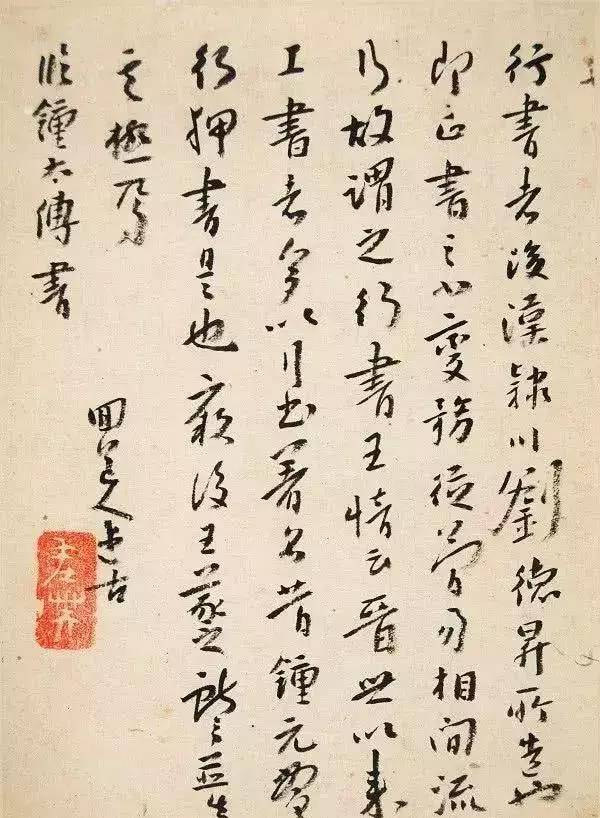 行書者後漢潁川劉德昇所造也
即正書之小變務從簡易相間流
行故謂之行書王愔云晉世以來
工書者多以行書著名昔鍾元常
行押書是也厥後王羲之獻之並造
其極焉
臨鍾太傅書